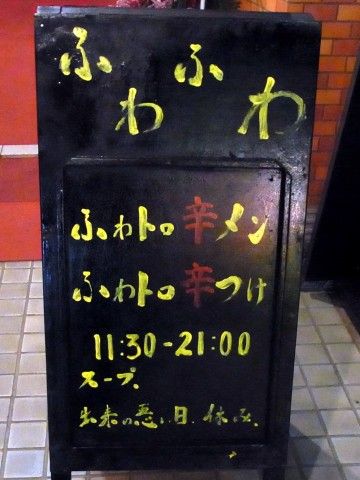 ふわふわ
ふわトロ辛メン
ふわトロ辛つけ
11:30-21:00
スープ、
出来の悪い日、休み、